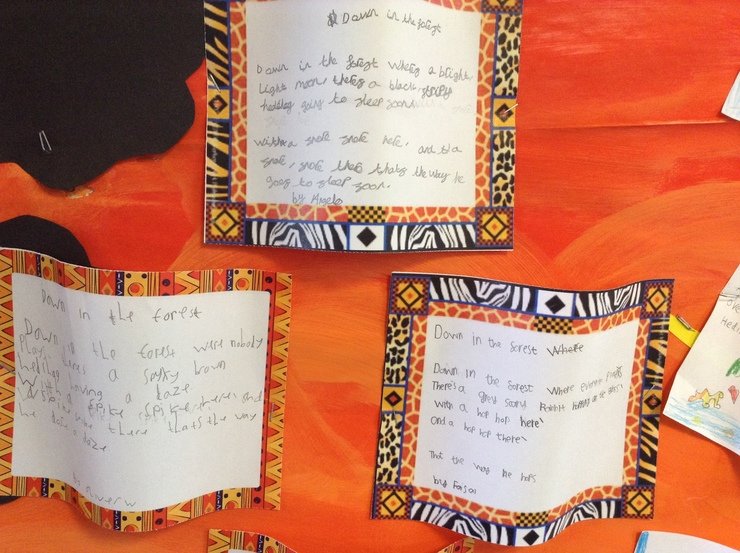 Down in the forest
Down in the forest wheres a bright
light moon, theres a black, stripy
hedgheg going to sleep soon.
With a snore snore here, and a
snore, snore there thats the way he
goes to sleep soon.
by Angelo
Down in the forest
Down in the forest were nobody
plays lives a spyky brown
hedhog having a daze
With a spike spike here and
a spike there thats the way
he daze a daze
Down in the forest Where
Down in the forest Where
There's a grey Rabbit
With a hop hop here
And a hop hop there
That the way he hops
by